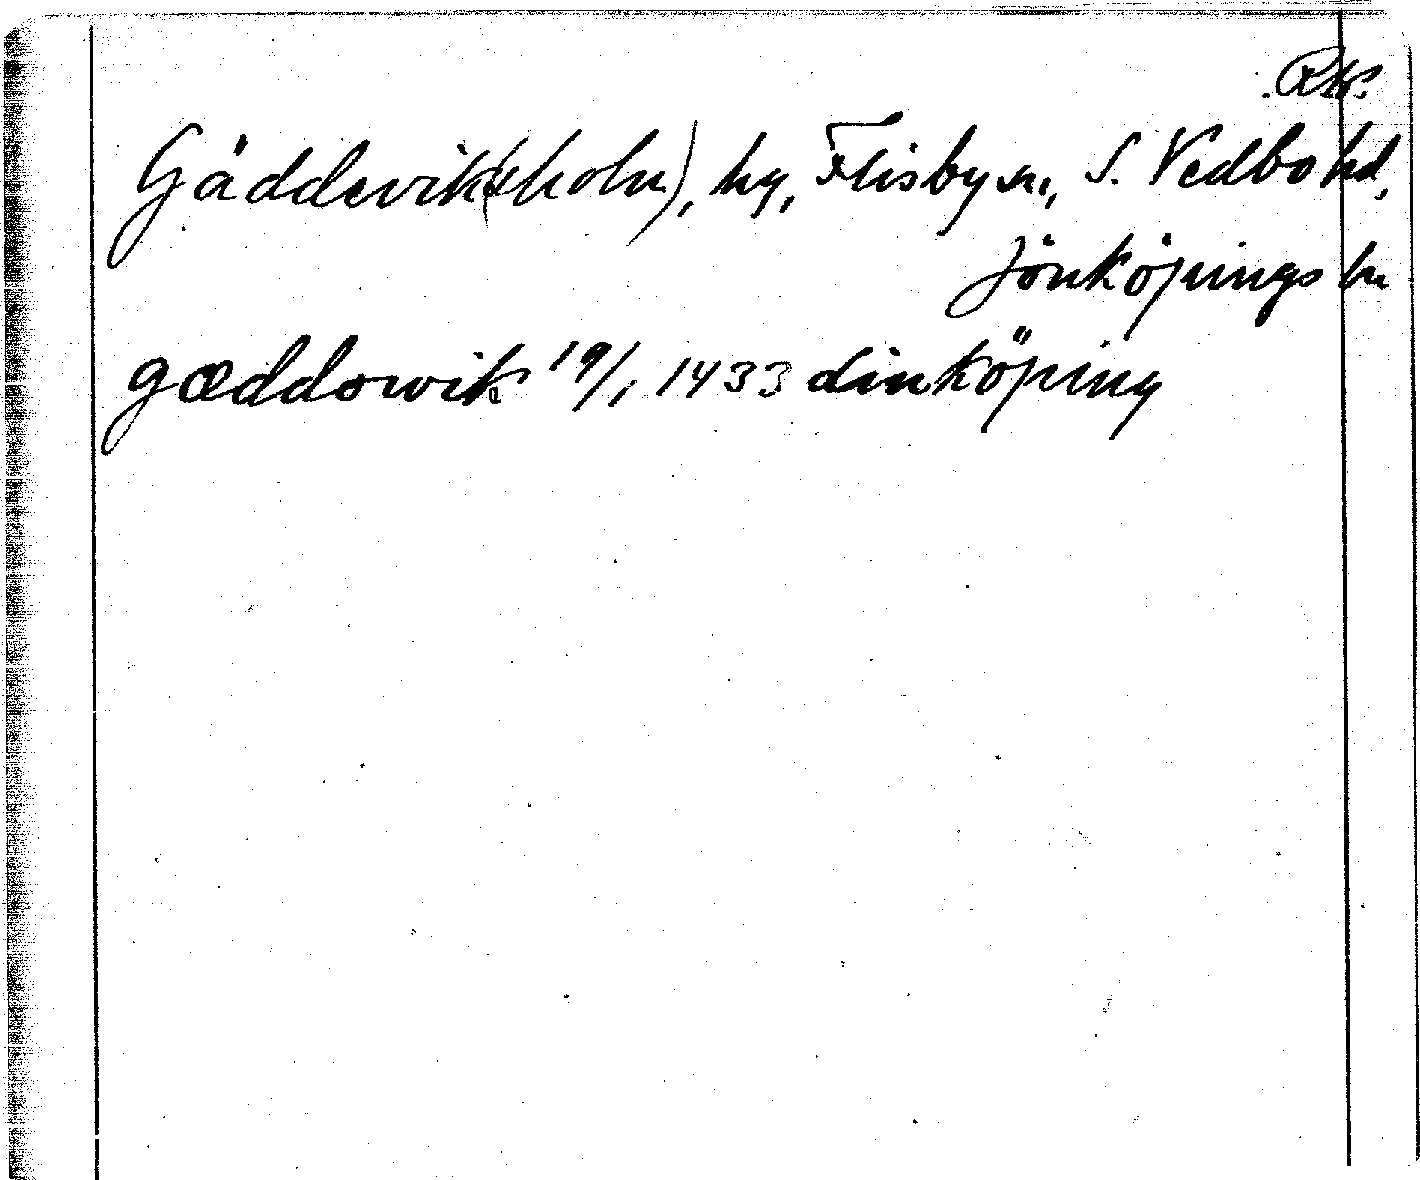 Gäddevik(sholm), by, Flisby sn, S. Vedbo hd,
Jönköpings ln
gæddowik 19/1 1433 Linköping